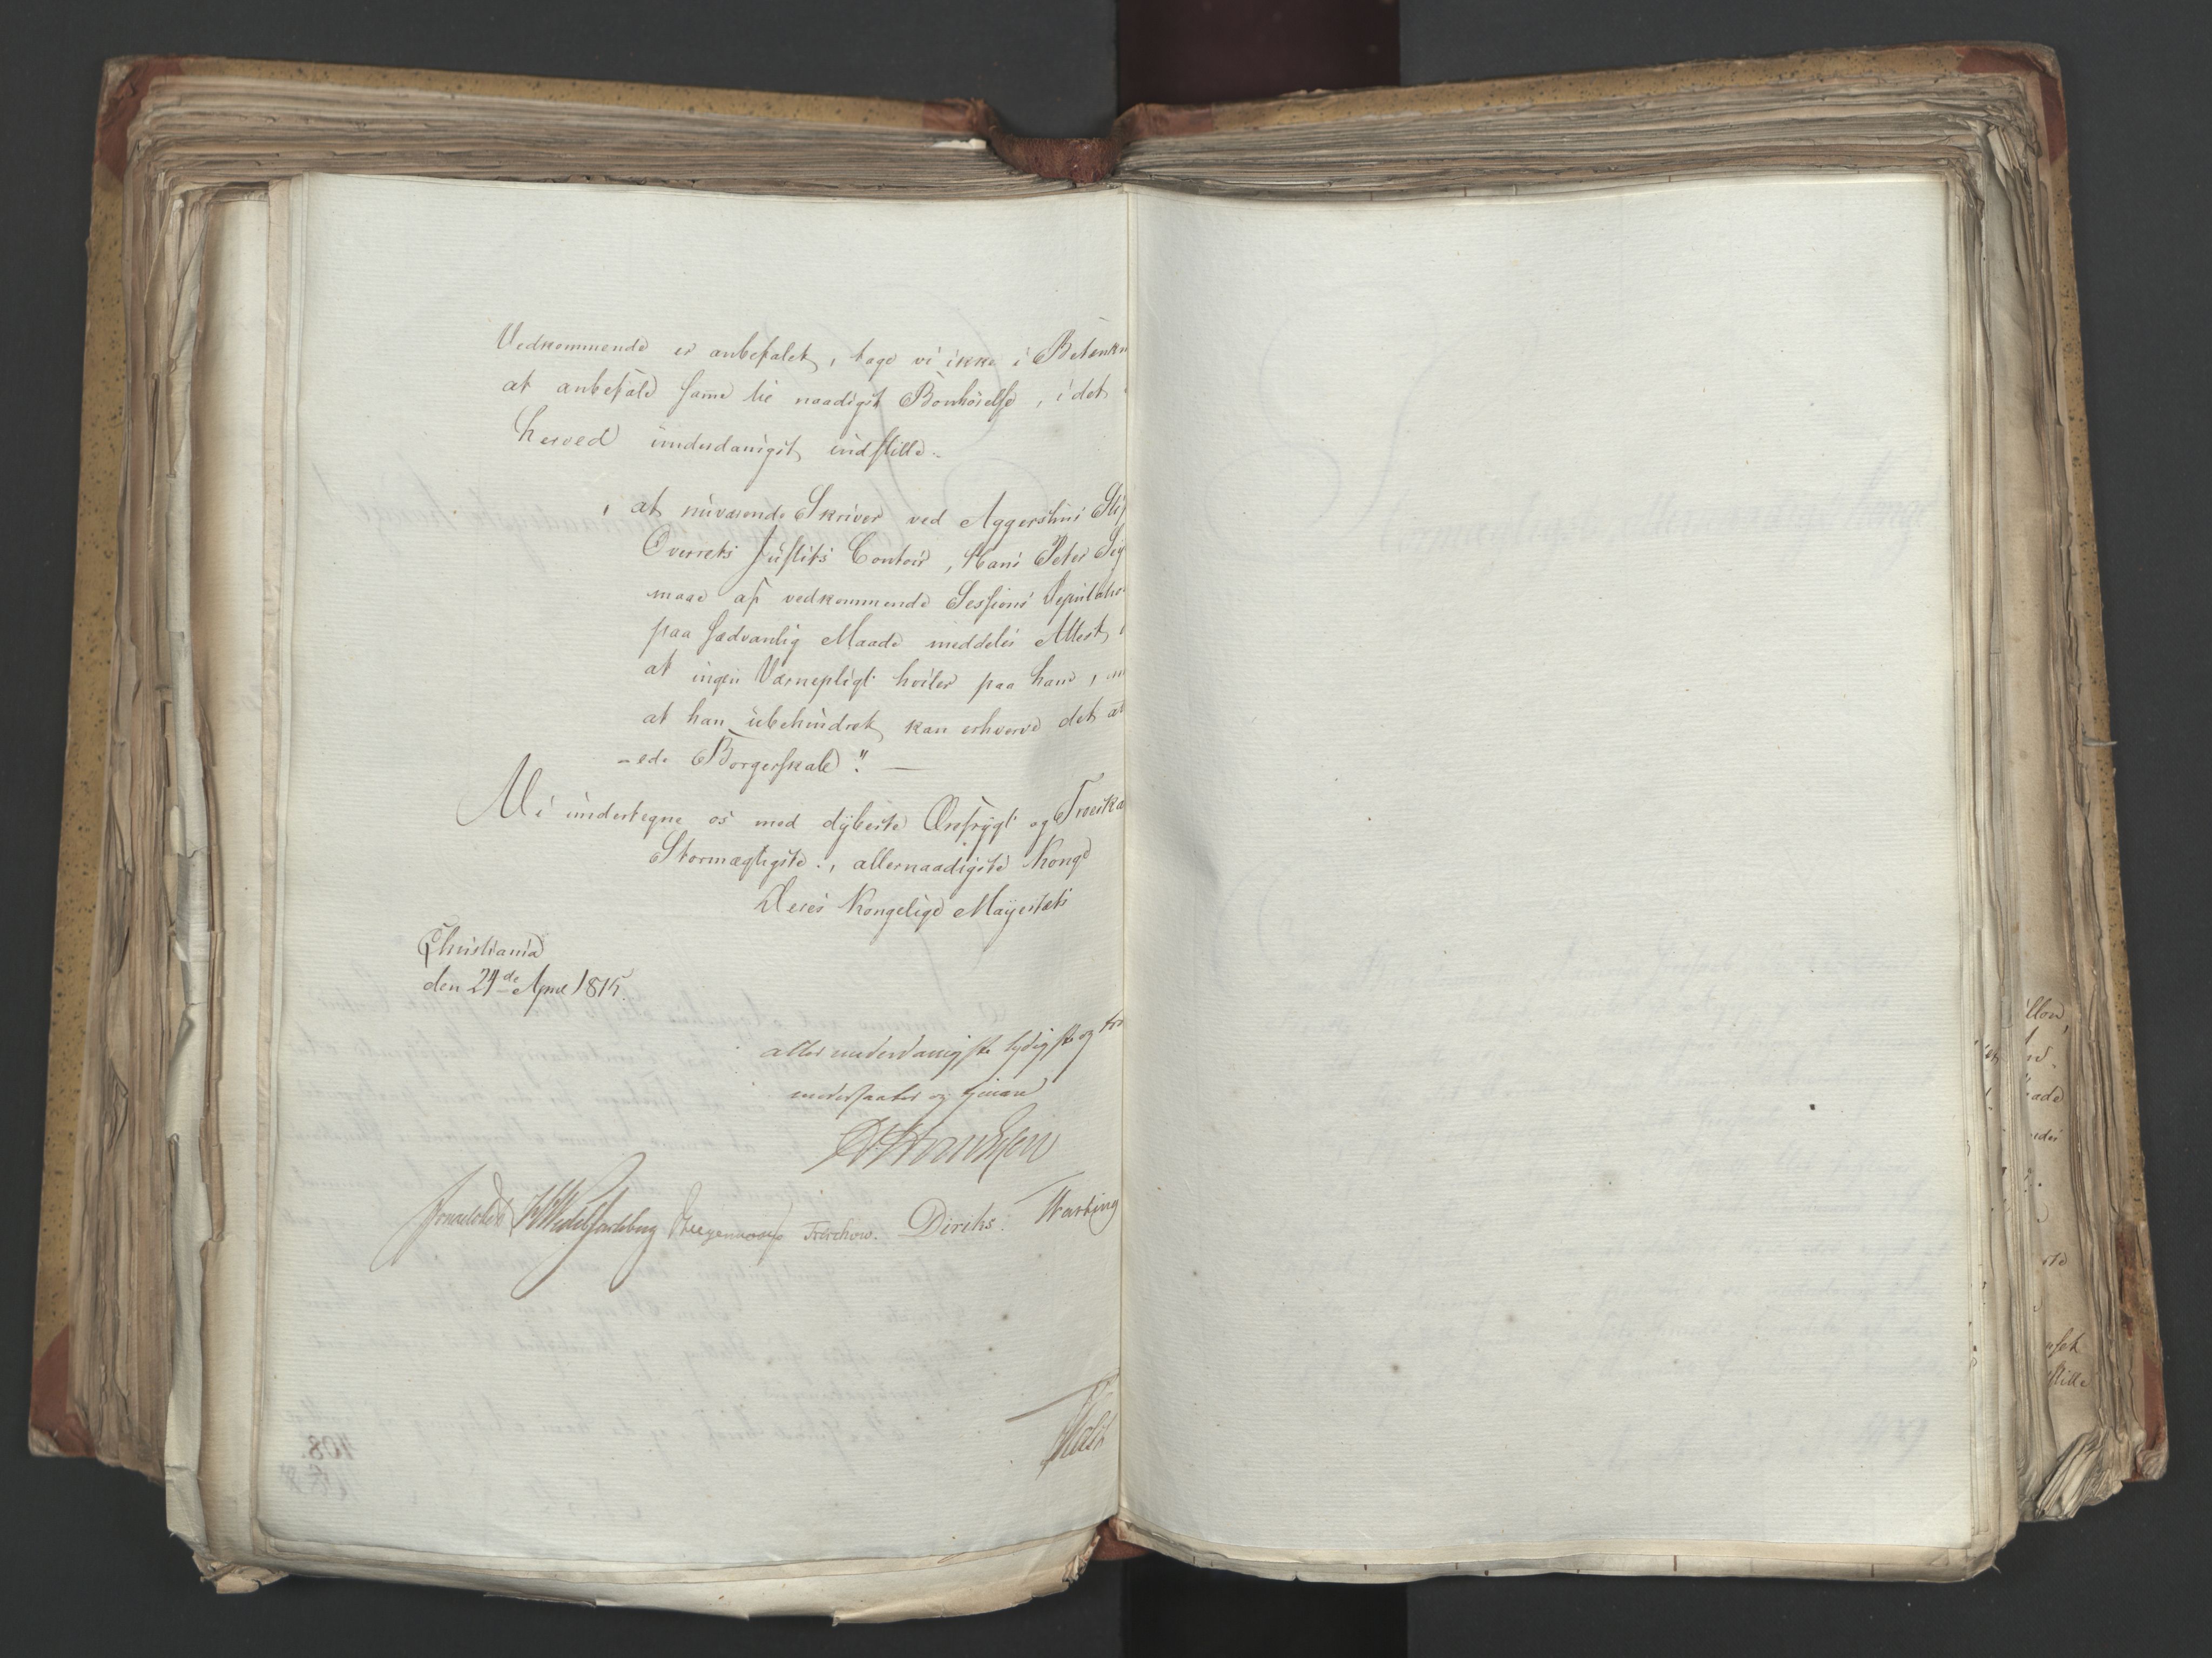 Vedkommende er anbefalet, tage vi ikke i Betænkn
at anbefale samme til naadigst Bønhørelse, i det
herved underdanigst indstille.
"at nuværende Skriver ved Aggershus Stif
Overrets Justits Contoir, Hans Peter
maae af vedkommende Sessions Deputatio
paa sædvanlig Maade meddeles Attest,
at ingen Værnepligt hviler paa ham,
at han ubehindret kan erhverve det at
-ede Borgerskab". —
Vi undertegne os med dybeste Ærefrygt og Troeska
Stormægtigste, allernaadigste Konge
Deres Kongelige Mayestæts
Christiania
den 24de April 1815.
allerunderdanigste lydigste og tro
undersaatter og tjenere
Sommerhielm WedelJarlsberg Hegermann Treschow. Diriks.
Holst
108.